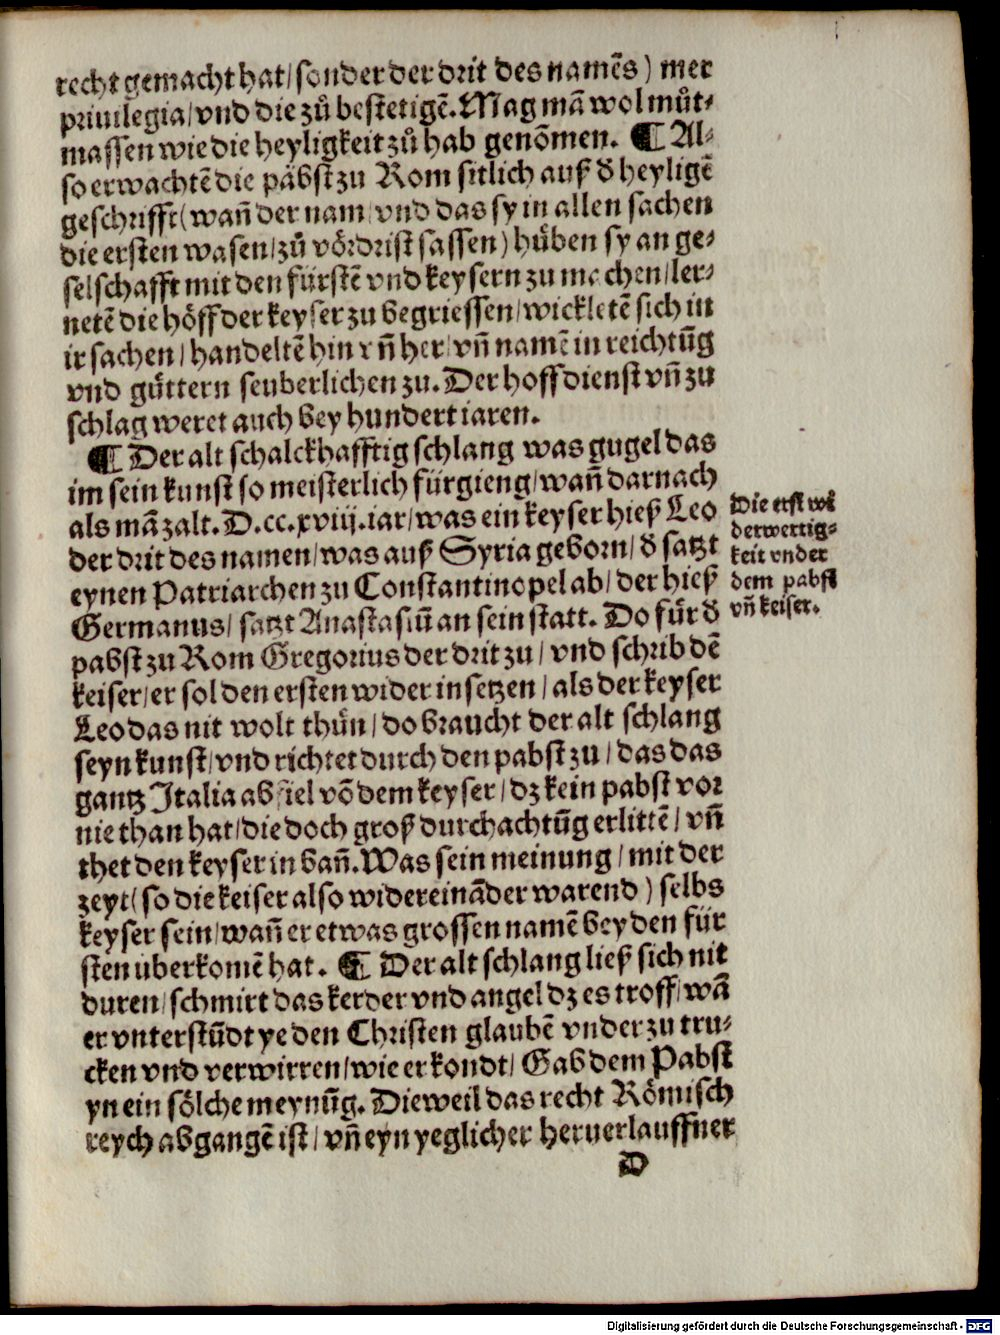 recht gemacht hat/ sonder der drit des namẽs) mer
priuilegia/ vnd die zů bestetigẽ. Mag mã wol můt⸗
massen wie die heyligkeit zů hab genõmen. ¶ Al⸗
so erwachtẽ die påbst zu Rom sitlich auß ð heyligẽ
geschrifft (wañ der nam vnd das sy in allen sachen
die ersten wasen/ zů võrdrist sassen) hůben sy an ge⸗
selschafft mit den fürstẽ vnd keysern zu machen/ ler⸗
netẽ die höff der keyser zu begriessen/ wickletẽ sich in
ir sachen/ handeltẽ hin vñ her/ vñ namẽ in reichtũg
vnd güttern seuberlichen zu. Der hoffdienst vñ zu
schlag weret auch bey hundert iaren.
¶ Der alt schalckhafftig schlang was gugel das
im sein kunst so meisterlich fürgieng/ wañ darnach
als mã zalt. D.cc.xviij. iar/ was ein keyser hieß Leo
der drit des namen/ was auß Syria geborn/ ð satzt
eynen Patriarchen zu Constantinopel ab/ der hieß
Germanus/ satzt Anastasiũ an sein statt. Do für ð
pabst zu Rom Gregorius der drit zu/ vnd schrib dẽ
keiser/ er sol den ersten wider in setzen/ als der keyser
Leo das nit wolt thün/ do braucht der alt schlang
seyn kunst/ vnd richtet durch den pabst zu/ das das
gantz Italia abfiel võ dem keyser/ dz kein pabst vor
nie than hat/ die doch groß durchachtũg erlittẽ/ vñ
thet den keyser in bañ. Was sein meinung/ mit der
zeyt (so die keiser also widereinãder warend) selbs
keyser sein/ wañ er etwas grossen namẽ bey den für
sten uberkomẽ hat. ¶ Der alt schlang ließ sich nit
duren/ schmirt das kerder vnd angel dz es troff/ wã
er vnterstũdt ye den Christen glaubẽ vnder zu tru⸗
cken vnd verwirren/ wie er kondt/ Gab dem Pabst
yn ein sölche meynũg. Dieweil das recht Römisch
reych abgangẽ ist/ vñ eyn yeglicher heruerlauffner
D
Die erst wi
derwertig⸗
keit vnder
dem pabst
vñ keiser.
Digitalisierung gefördert durch die Deutsche Forschungsgemeinschaft - DFG